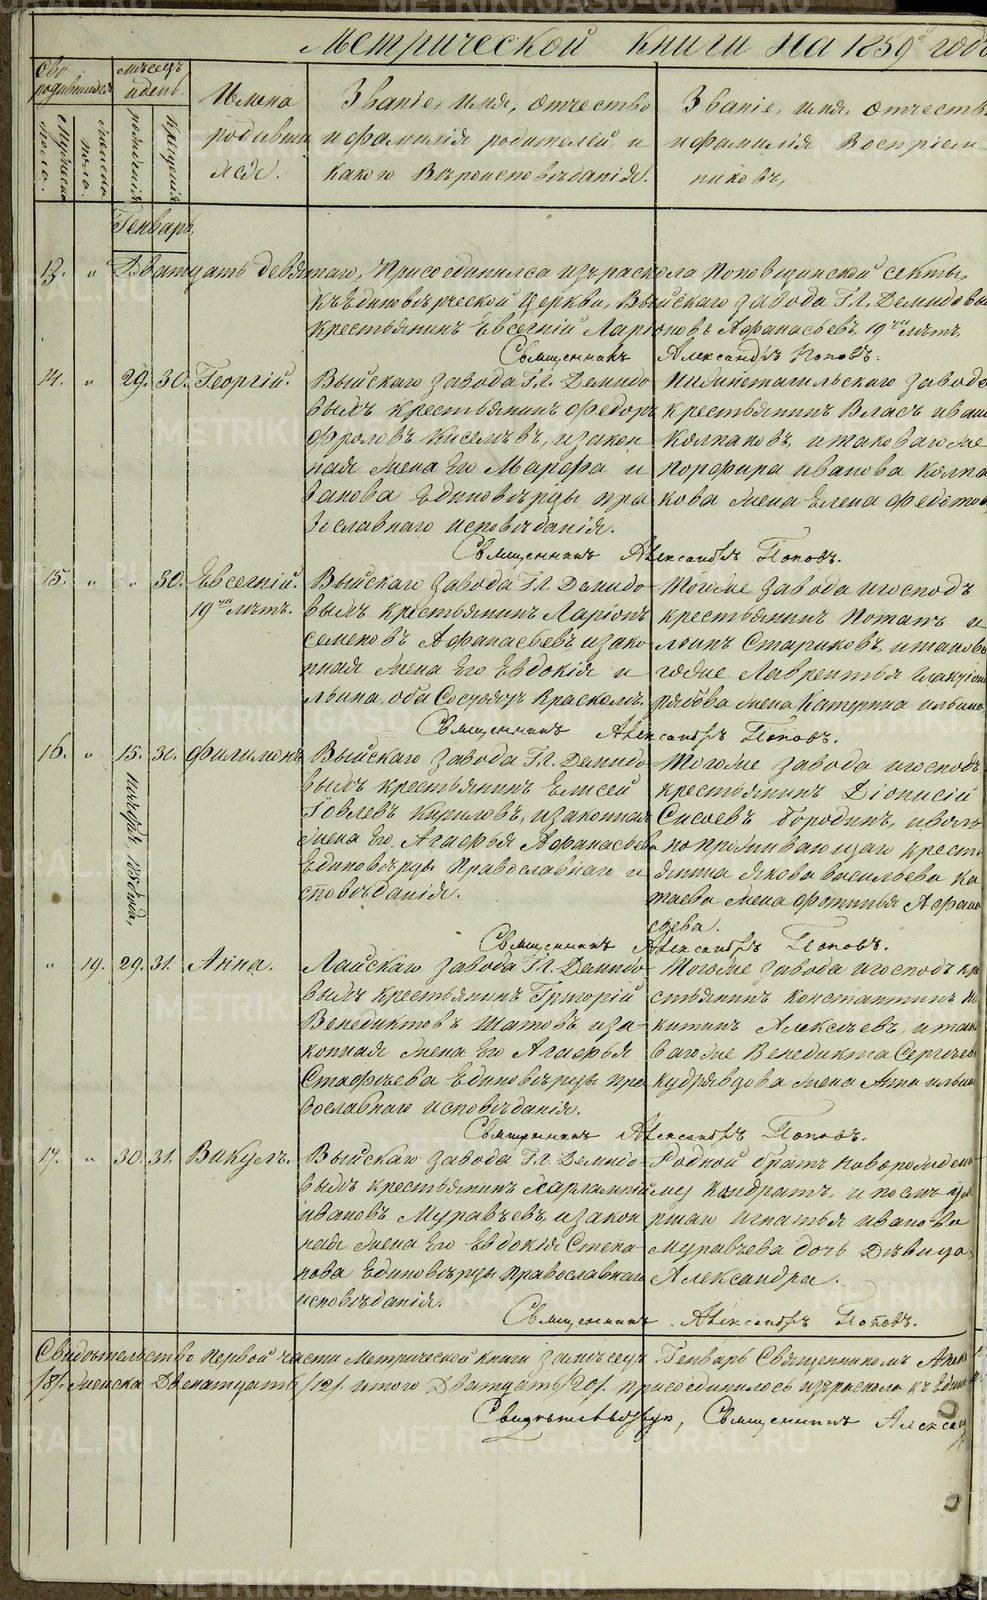 Метрической книги на 1859й годъ
Имена
родивши
хся.
Званіе, имя, отчество
и фамилія родителей и
какого Вѣроисповѣданія.
Званіе, имя, отчеств
и фамилія Воспріем
никовъ,
Генварь
13. " Двадцать девятаго, Присоединился изъ раскола Поповщинской секты,
къ Единовѣрческой церкви, Выйскаго завода Г.г. Демидовы
крестьянинъ Евсегній Ларіоновъ Афанасьевъ, 19ти лѣтъ.
Священникъ Александръ Поповъ.
14. " 29. 30. Георгій. Выйскаго завода Г.г. Демидо
вымъ крестьянинъ Федоръ
Фроловъ Киселевъ, и закон
ная жена его Марфа и
ванова Единовѣрцы пра
вославнаго исповѣданія.
Нижнетагильскаго завода
крестьянинъ Власъ ивано
Колпаковъ, и таковагоже
Порфира иванова Колпа
кова жена Елена Федотов
Священникъ Александръ Поповъ.
15. " " 30. Евсегній. 19ти лѣтъ.
Выйскаго завода Г.г. Демидо
вымъ крестьянинъ Ларіонъ
семеновъ Афанасьевъ, и зако
нная жена его Евдокія и
льина, оба Состоятъ Врасколѣ.
Тогоже завода и господъ
крестьянинъ Потапъ и
льинъ Стариковъ, и таково
гоже Лаврентья
рябова жена Катерина ильина
Священникъ Александръ Поповъ.
16. " 15. 31. Филимонъ
Выйскаго завода Г.г. Демидо
вымъ крестьянинъ Елисей
Іовлевъ Кириловъ, и законная
жена его, Агафья Афанасьева
Единовѣрцы Православнаго и
сповѣданія.
Тогоже завода и господъ
крестьянинъ Діонисій
Сысоевъ Бородинъ, и
попроживающаго крест
янина якова васильева Ка
таева жена Фотинья Афана
сьева.
Священникъ Александръ Поповъ.
" 19. 29. 31. Анна.
Лайскаго завода Г.г. Демидо
вымъ крестьянинъ Григорій
Венедиктовъ Шатовъ, и за
конная жена его Агафья
Стафѣева Единовѣрцы пра
вославнаго исповѣданія.
Тогоже завода и господъ кре
стьянинъ константинъ ни
китинъ Алексѣевъ, и тако
вагоже Венедикта Сергѣева
Кудрявцова жена Анна ильина
Священникъ Александръ Поповъ.
17. " 30. 31. Вакулъ.
Выйскаго завода Г.г. Демидо
вымъ крестьянинъ Харлампій
ивановъ Муравьевъ, и закон
ная жена его Евдокія Степа
нова Единовѣрцы Православнаго
исповѣданія.
Родной братъ новорожден
му Кондратъ, и послѣ уме
ршаго Игнатья иванова
Муравьева дочь Дѣвица
Александра.
Священникъ Александръ Поповъ.
Свидѣтельство Первой части Метрической книги за мѣсяцъ Генварь Священникомъ Алекс
/8/. женска Двенатцать /12/. итого Двадцать /20/. присоединилось изъ раскола къ Един
Свидѣтельствую, Священникъ Алексан